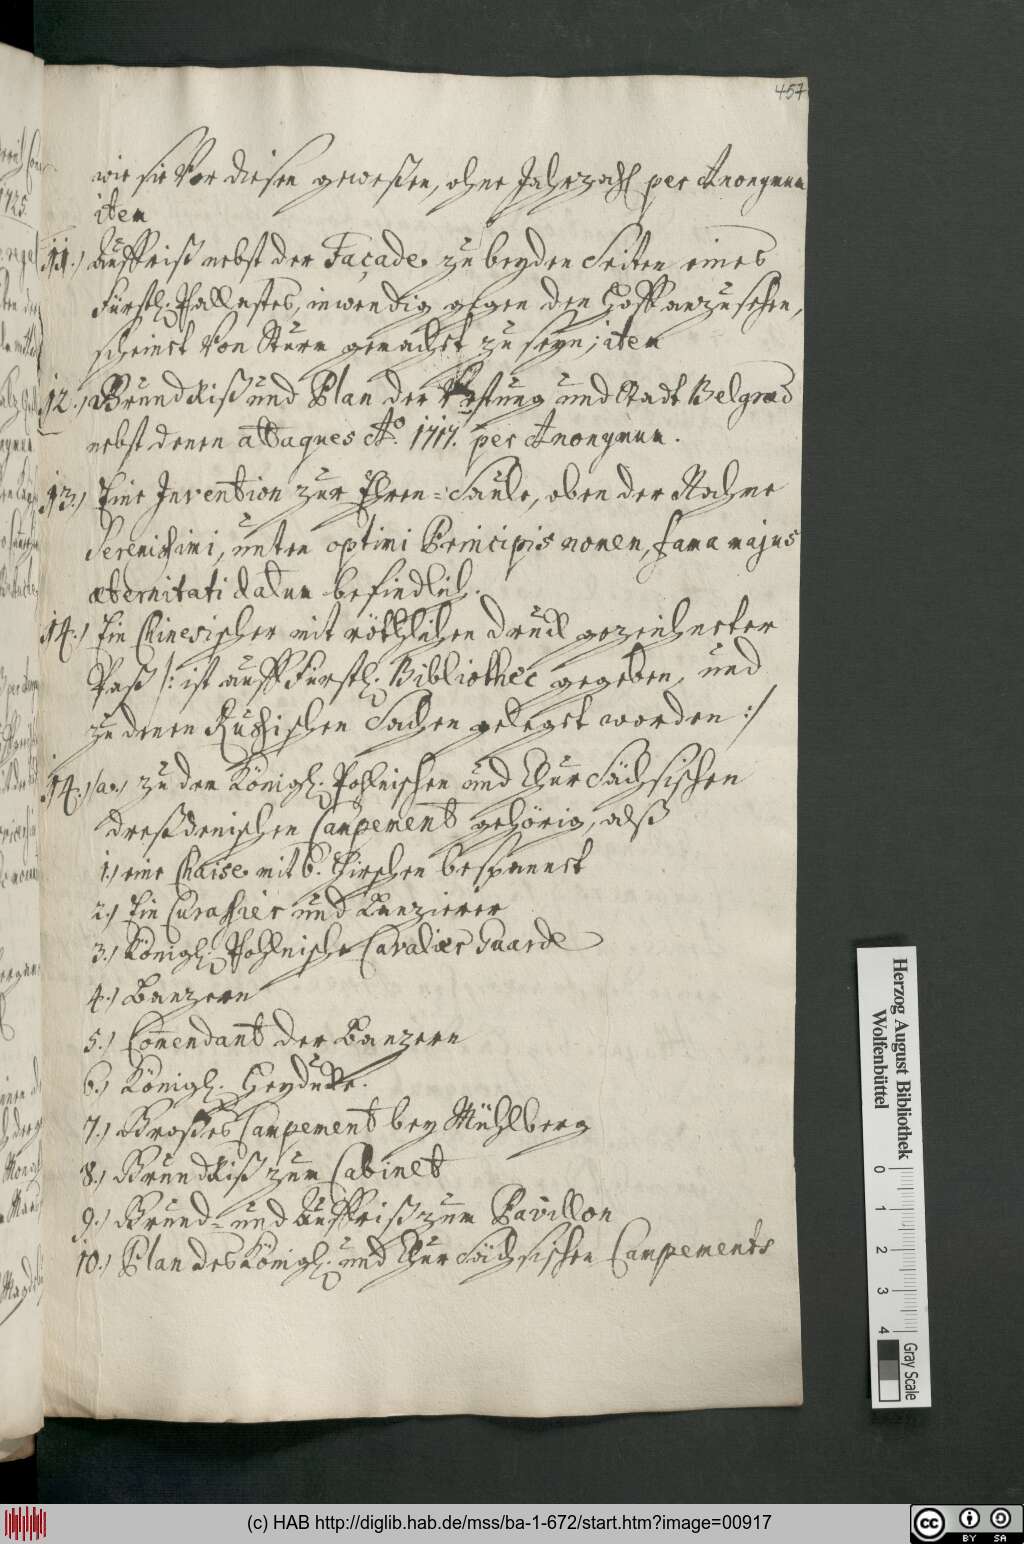 457
wie sie Vor diesen geweßen, ohne Jahrzahl per Anonymum
item
11.) Auffriß nebst der Façade zu beyden Seiten eines
Fürstl. Pallastes, inwendig gegen den Hoff anzusehen,
scheinet Von Sturm gemacht zu seyn; item
12.) Grundriß und Plan der Vestung und Stadt Belgrad
nebst denen attaques Ao. 1717. per Anonymum.
13.) Eine Invention zur Ehren=Säule, oben der Nahme
Serenissimi, unten optimi Principis nomen, fama majus
æternitati datum befindlich.
14.) Ein Chinesischer mit röthlichen druck gezeichneter
Paß /: ist auff Fürstl. Bibliothec gegeben, und
zu denen Rußischen Sachen geleget worden :/
14.)(a.) zu dem Königl. Pohlnischen und ChurSächsischen
dreßdenischen Campement gehörig, alß
1.) eine Chaise mit 6. Hirschen bespannet
2.) Ein Curassier und Panzierer
3.) Königl. Pohlnische Cavalier Guarde
4.) Panzern
5.) Com̅endant der Panzern
6.) Königl. Heyducke.
7.) Großes Campement bey Mühlberg
8.) Grundriß zum Cabinet
9.) Grund- und Auffriß zum Pavillon
10.) Plan des Königl. und ChurSächsischen Campements
1725.
Herzog August Bibliothek
Wolfenbüttel
0 1 2 3 4
Gray Scale
(c) HAB http://diglib.hab.de/mss/ba-1-672/start.htm?image=00917
cc BY SA